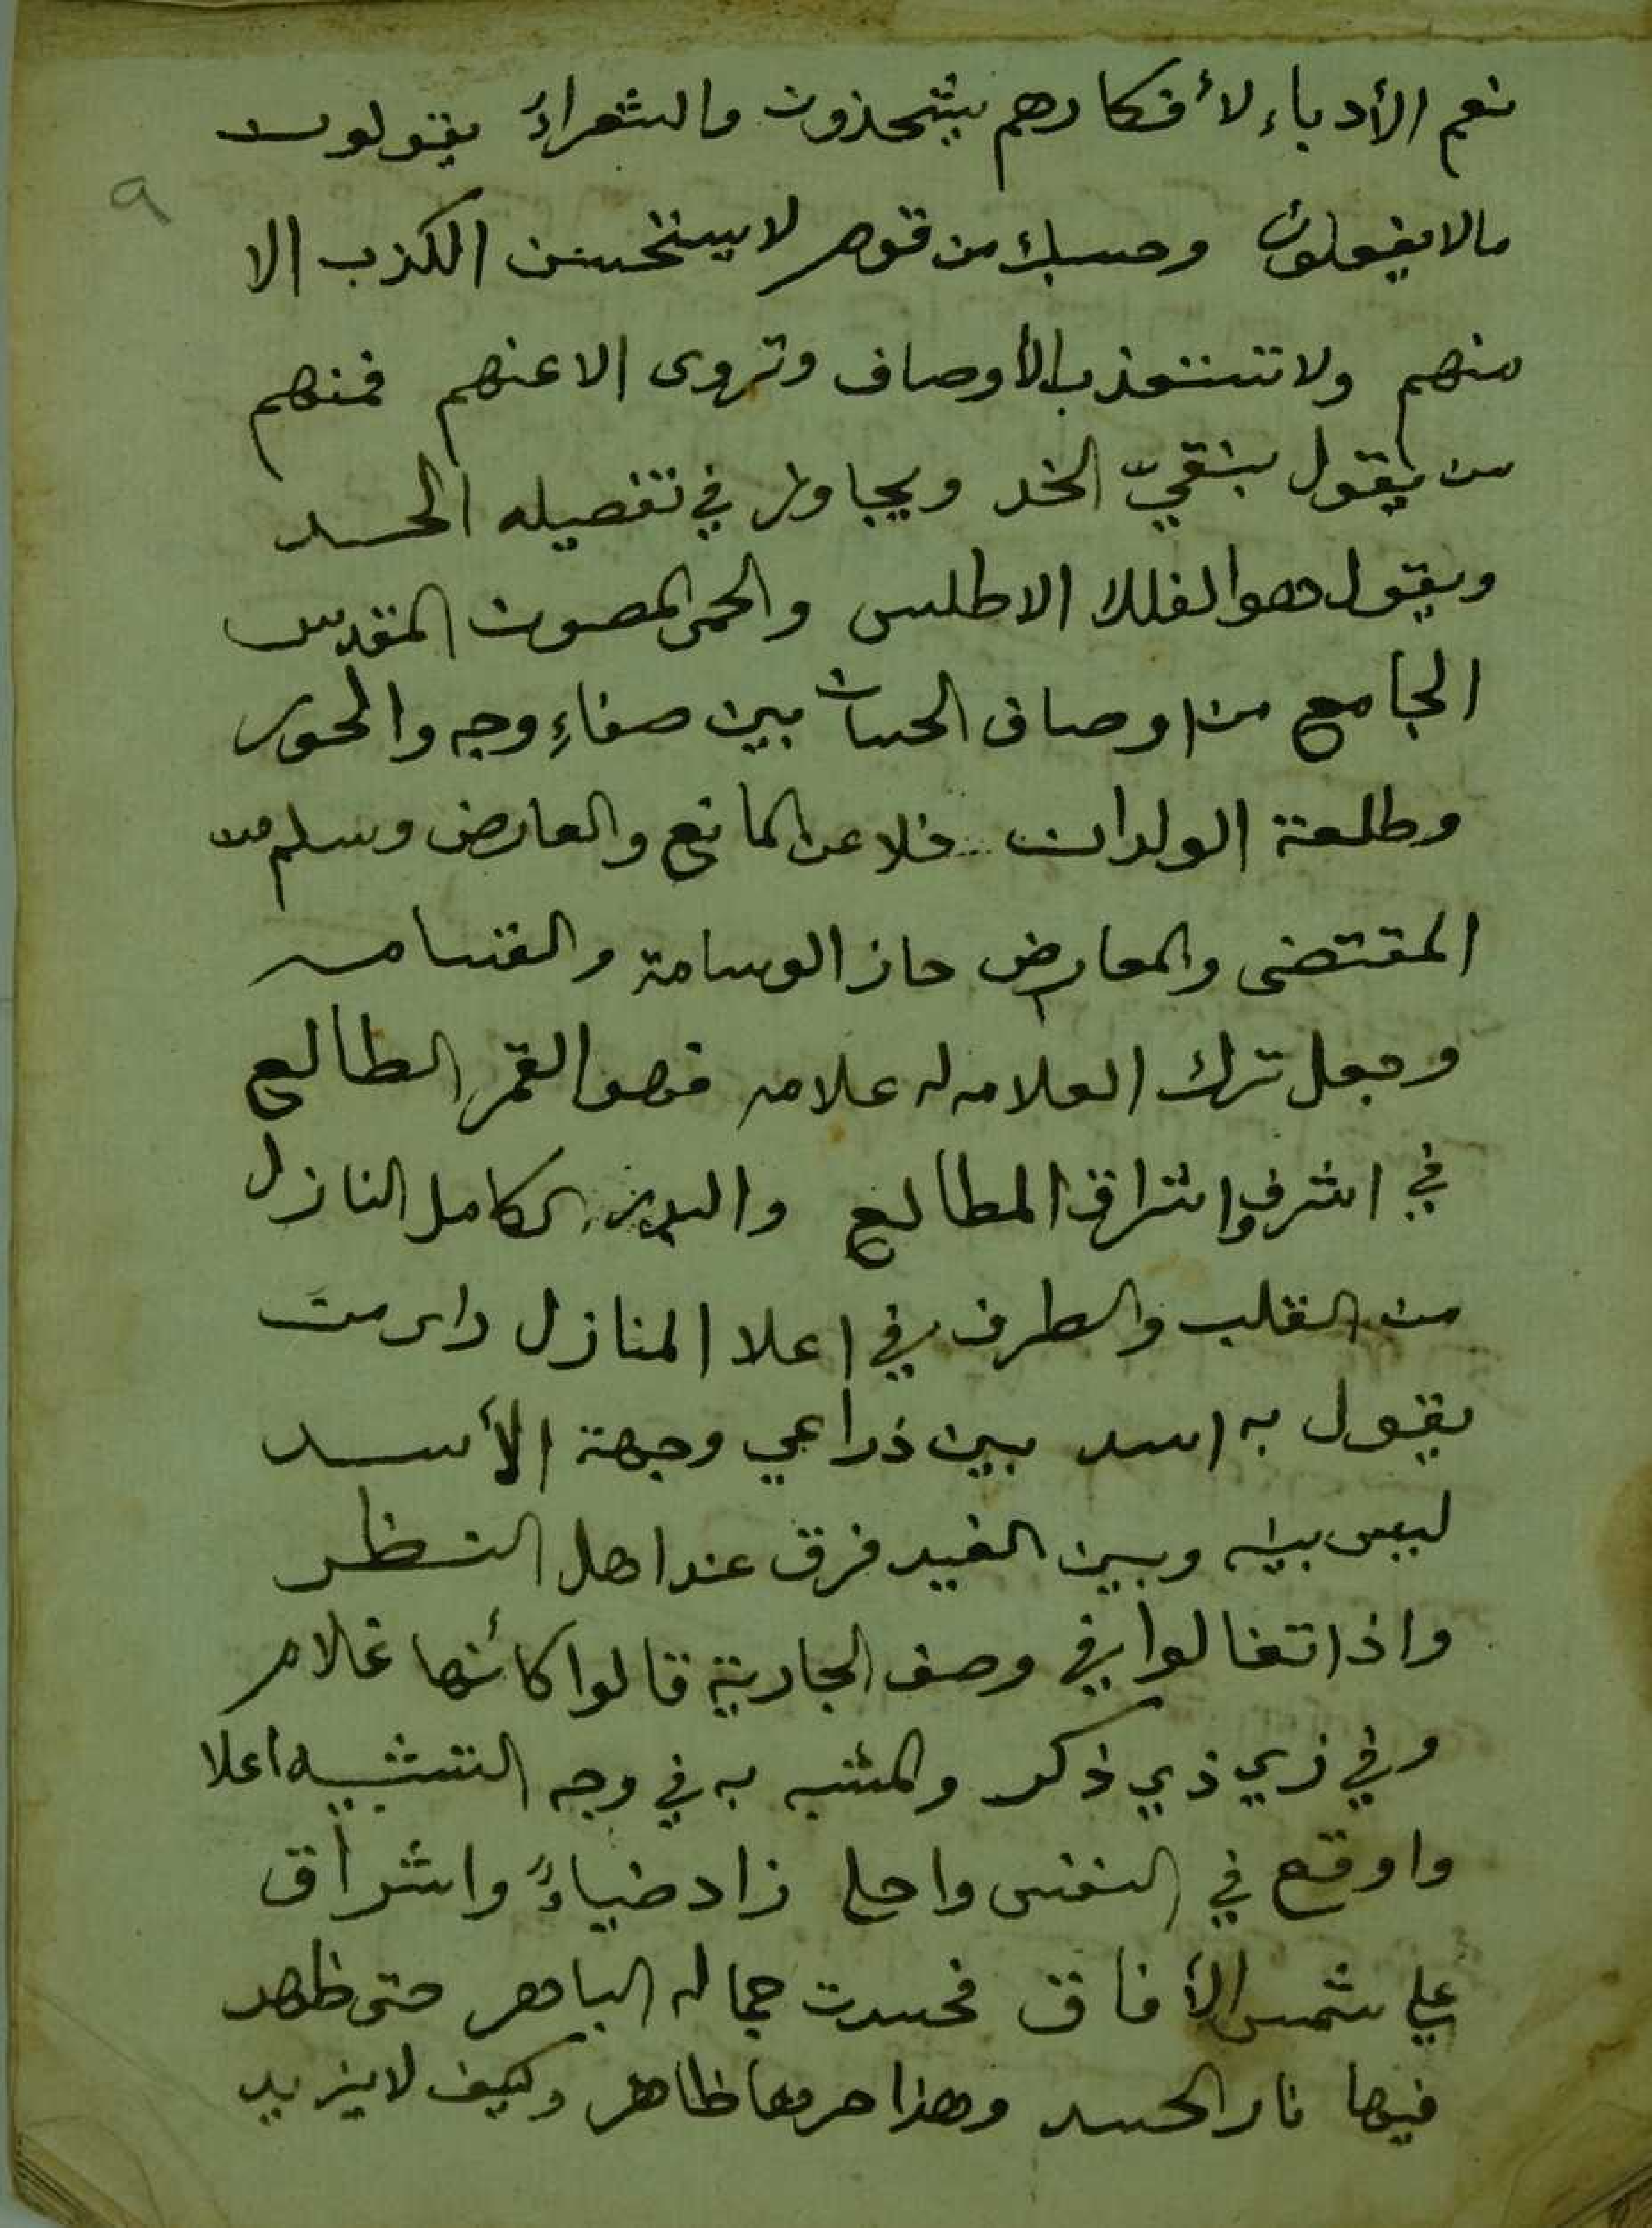 نعم الأدباء لأفكارهم يشحذون والشعراءُ يقولون
مالا يفعلون وحسبك من قوم لا يستحسن الكذب الا
منهم ولا تستعذب الأوصاف وتروى الا عنهم فمنهم
من يقول بنقيّ الخد ويجاوز في تفصيله الحد
ويقول هو الفلك الاطلس والحمى المصون المقدس
الجامع من اوصاف الحسان بين صفاءِ وجه والحور
وطلعة الولدان خلا عن المانع والعارض وسلم من
المقتضى والمعارض حاز الوسامة والقسامه
وجعل ترك العلامه له علامه فهو القمر الطالع
في اشرف واشراق المطالع والبدر الكامل النازل
من القلب والطرف في اعلا المنازل
يقول به اسد بين ذراعي وجبهة الأسد
ليس بينه وبين الغيد فرق عند اهل النظر
واذا تغالوا في وصف الجارية قالوا كأنها غلام
وفي زي ذي ذكر والمشبه به في وجه التشبيه اعلا
واوقع في النفس واحلى زاد ضياءً واشراق
على شمس الأفاق فحسدت جماله الباهر حتى ظهر
فيها نار الحسد وهذا حرها ظاهر وكيف لا يزيد
٩